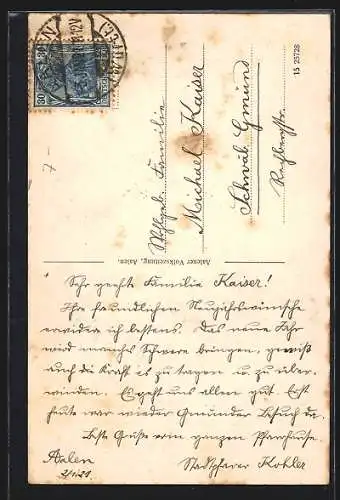 15 25728
Wohlgeb. Familie
Michael Kaiser
Schwäb. Gmünd
Rechbergstr.
7-
Aalener Volkszeitung, Aalen.
Sehr geehrte Familie Kaiser!
Ihre freundlichen Neujahrswünsche
erwidere ich bestens. Das neue Jahr
wird manches Schwere bringen, gewiß
auch die Kraft es zu tragen u. zu über-
winden. Es geht uns allen gut. Erst
heute war wieder Gmünder Besuch da.
Beste Grüße vom ganzen Pfarrhause.
Aalen
Stadtpfarrer Kohler